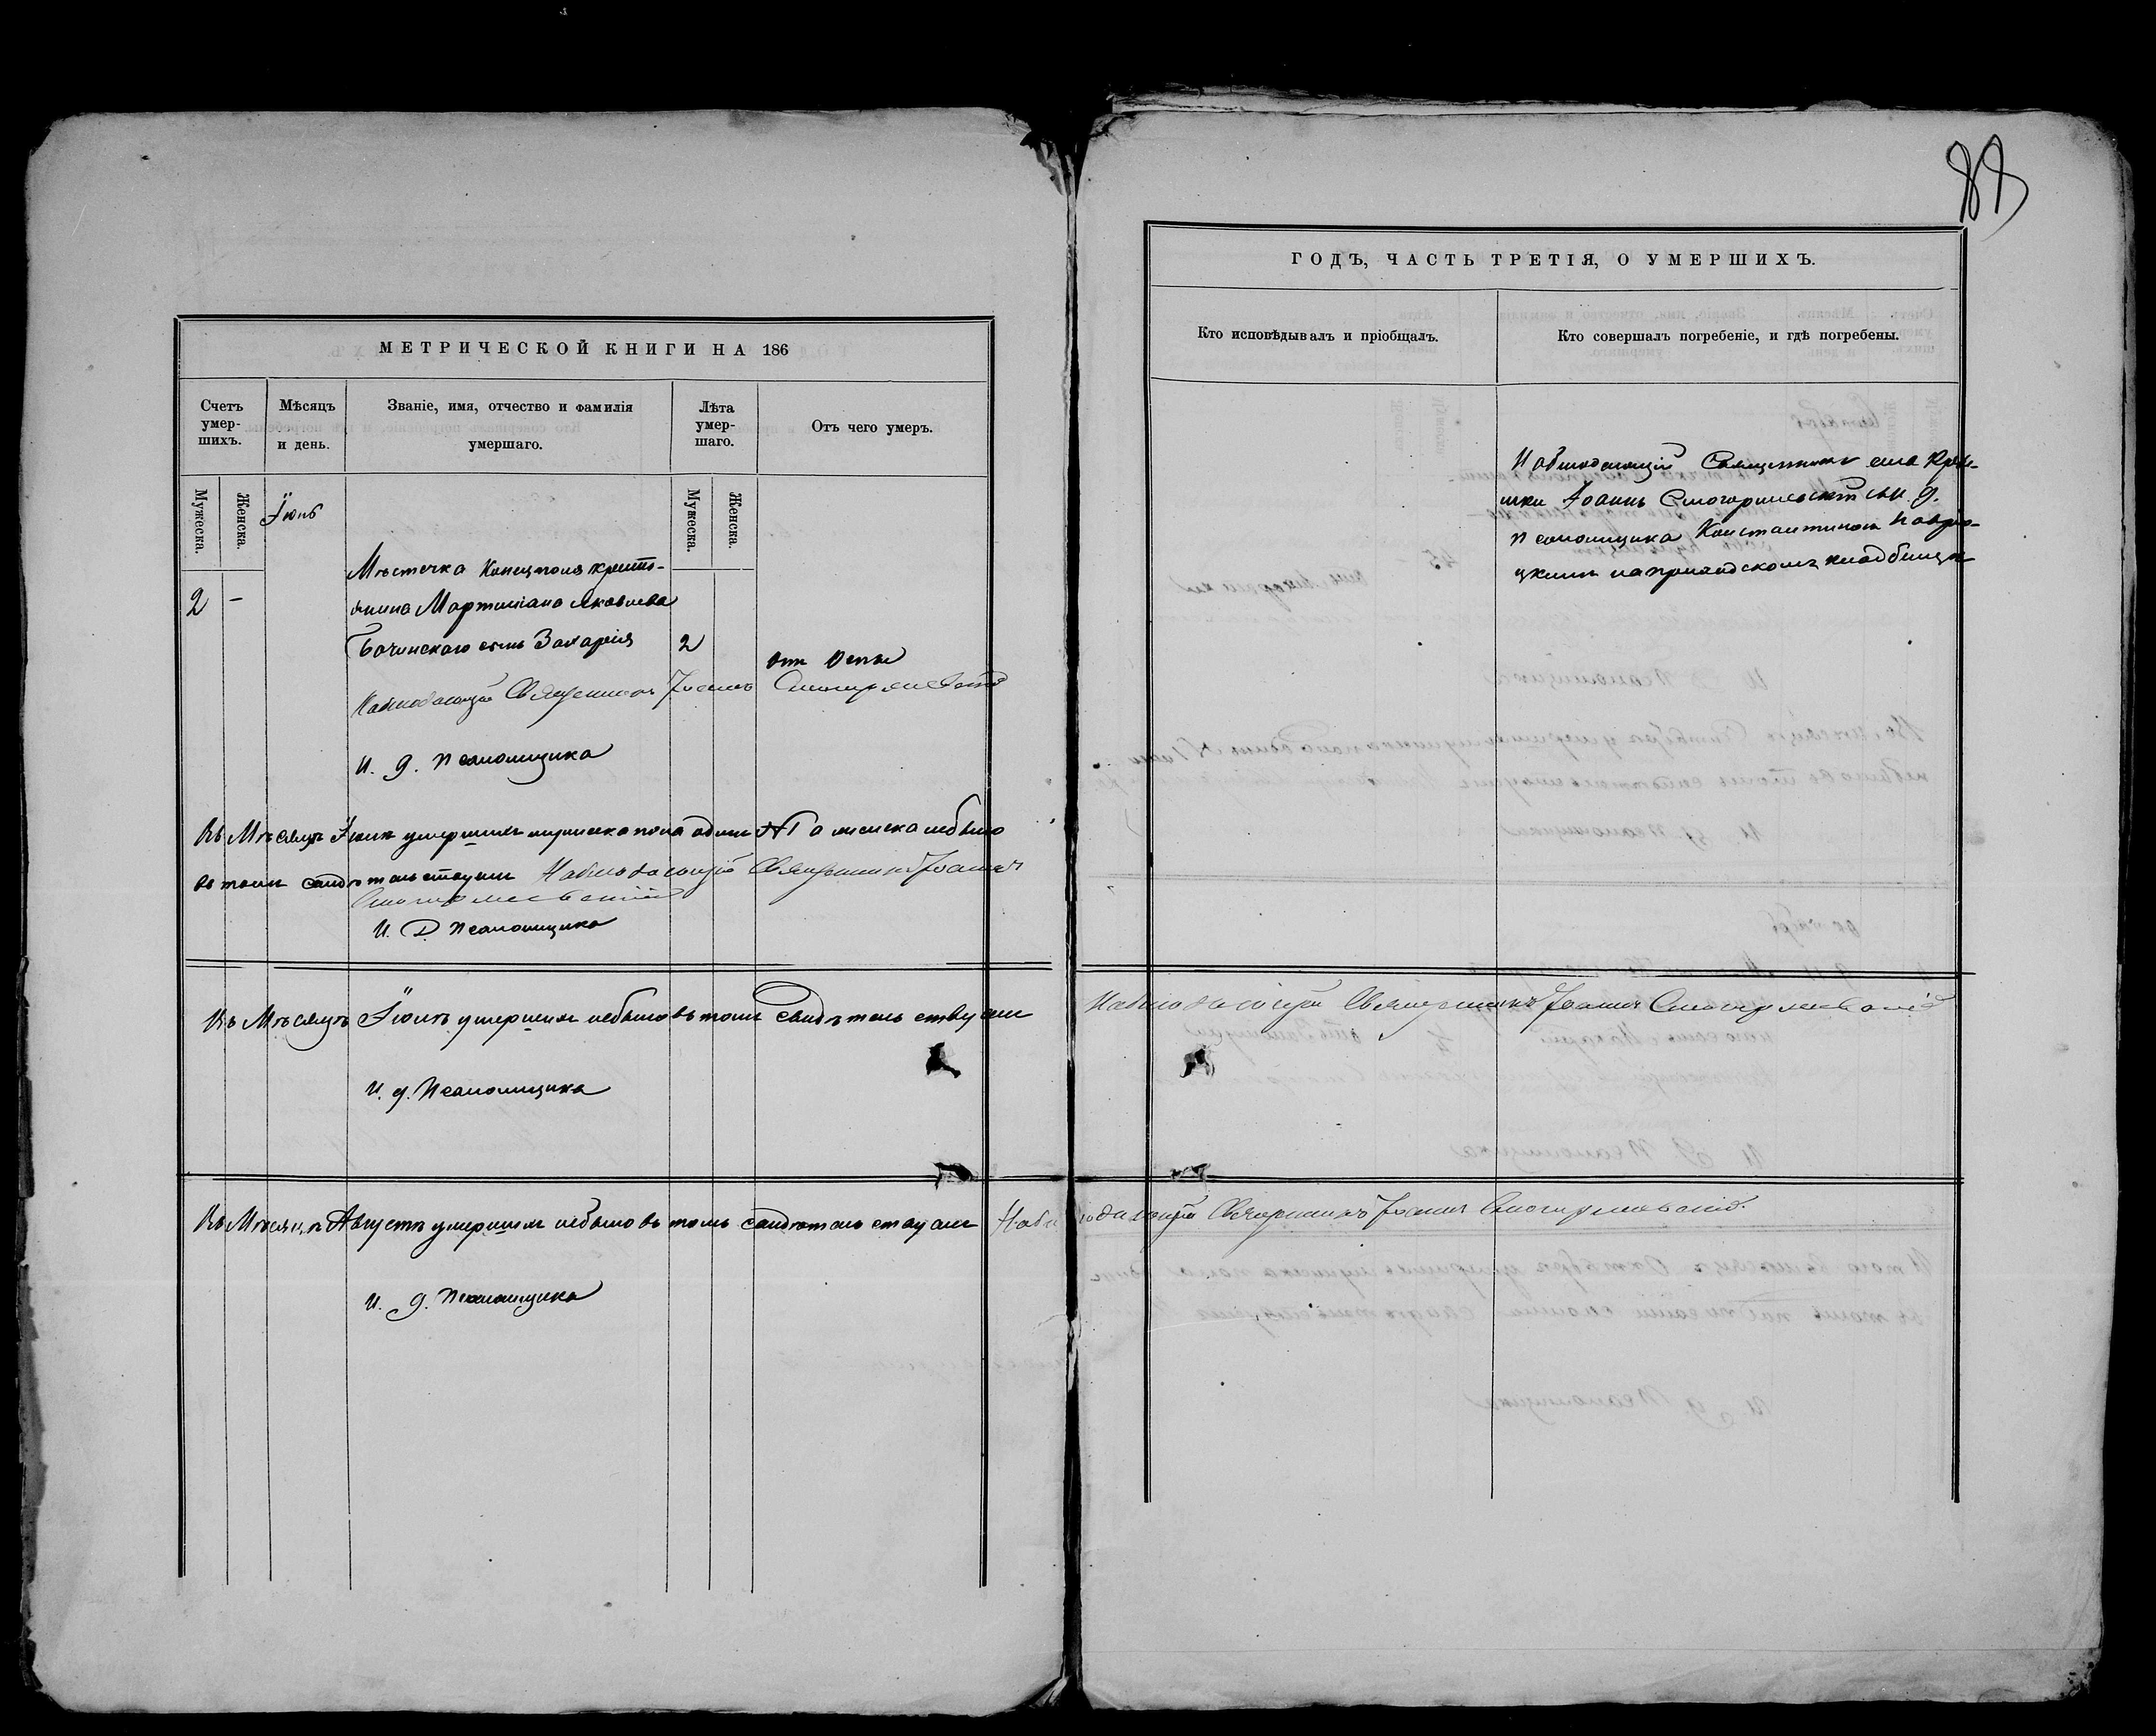 88
МЕТРИЧЕСКОЙ КНИГИ НА 186
Счетъ умер-шихъ.
Мѣсяцъ и день.
Званіе, имя, отчество и фамилія умершаго.
Лѣта умер-шаго.
Отъ чего умеръ.
Мужеска.
Женска.
Мужеска.
Женска.
Іюнь
Мѣстечка Конецполя кресть-
2 -
янина Мартиніана Яковлева
Бачинскаго сынъ Захарія 2 отъ Оспы
Наблюдающій Священникъ Іоаннъ
И. д. Псаломщика
Въ Мѣсяцѣ Іюнѣ умершихъ мужеска пола одинъ № 1 а женска небыло
въ томъ свидѣтельствуемъ Наблюдающій Священникъ Іоаннъ
И. Д. Псаломщика
Въ Мѣсяцѣ Іюлѣ умершихъ небыло въ томъ свидѣтельствуемъ
И. д. Псаломщика
Въ Мѣсяцѣ Августѣ умершихъ небыло въ томъ свидѣтельствуемъ Наблюдающій Священникъ Іоаннъ
И. д. Псаломщика
ГОДЪ, ЧАСТЬ ТРЕТІЯ, О УМЕРШИХЪ.
Кто исповѣдывалъ и пріобщалъ.
Кто совершалъ погребеніе, и гдѣ погребены.
Наблюдающій Священникъ села
Іоаннъ съ и. д.
Псаломщика Константиномъ
на приходскомъ кладбищѣ
Наблюдающій Священникъ Іоаннъ